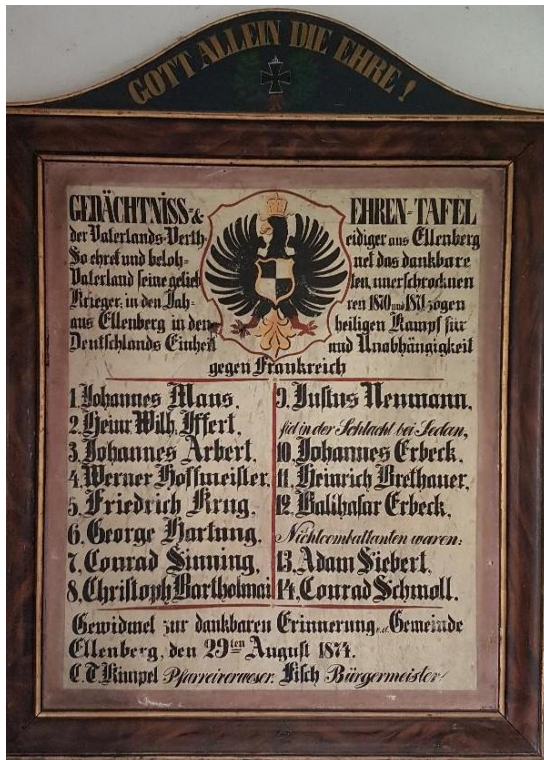 GOTT ALLEIN DIE EHRE!
GEDÄCHTNISS & EHREN-TAFEL
der Vaterlands-Vertheidiger aus Ellenberg
So ehret und belohnet das dankbare
Vaterland seine geliebten, unerschrocknen
Krieger, in den Jahren 1870 und 1871 zogen
aus Ellenberg in den heiligen Kampf für
Deutschlands Einheit und Unabhängigkeit
gegen Frankreich
1. Johannes Maus,
2. Heinr Wilh, Iffert,
3. Johannes Arbert,
4. Werner Hoffmeister,
5. Friedrich Krug,
6. George Hartung,
7. Conrad Sinning,
8. Christoph Bartholmai
9. Justus Neumann,
fiel in der Schlacht bei Sedan,
10. Johannes Erbeck,
11. Heinrich Brethauer,
12. Balthasar Erbeck,
Nichtcombattanten waren:
13. Adam Siebert,
14. Conrad Schmoll.
Gewidmet zur dankbaren Erinnerung v. d. Gemeinde
Ellenberg, den 29ten August 1874.
C. T. Rimpel Pfarreiverweser. Fisch Bürgermeister